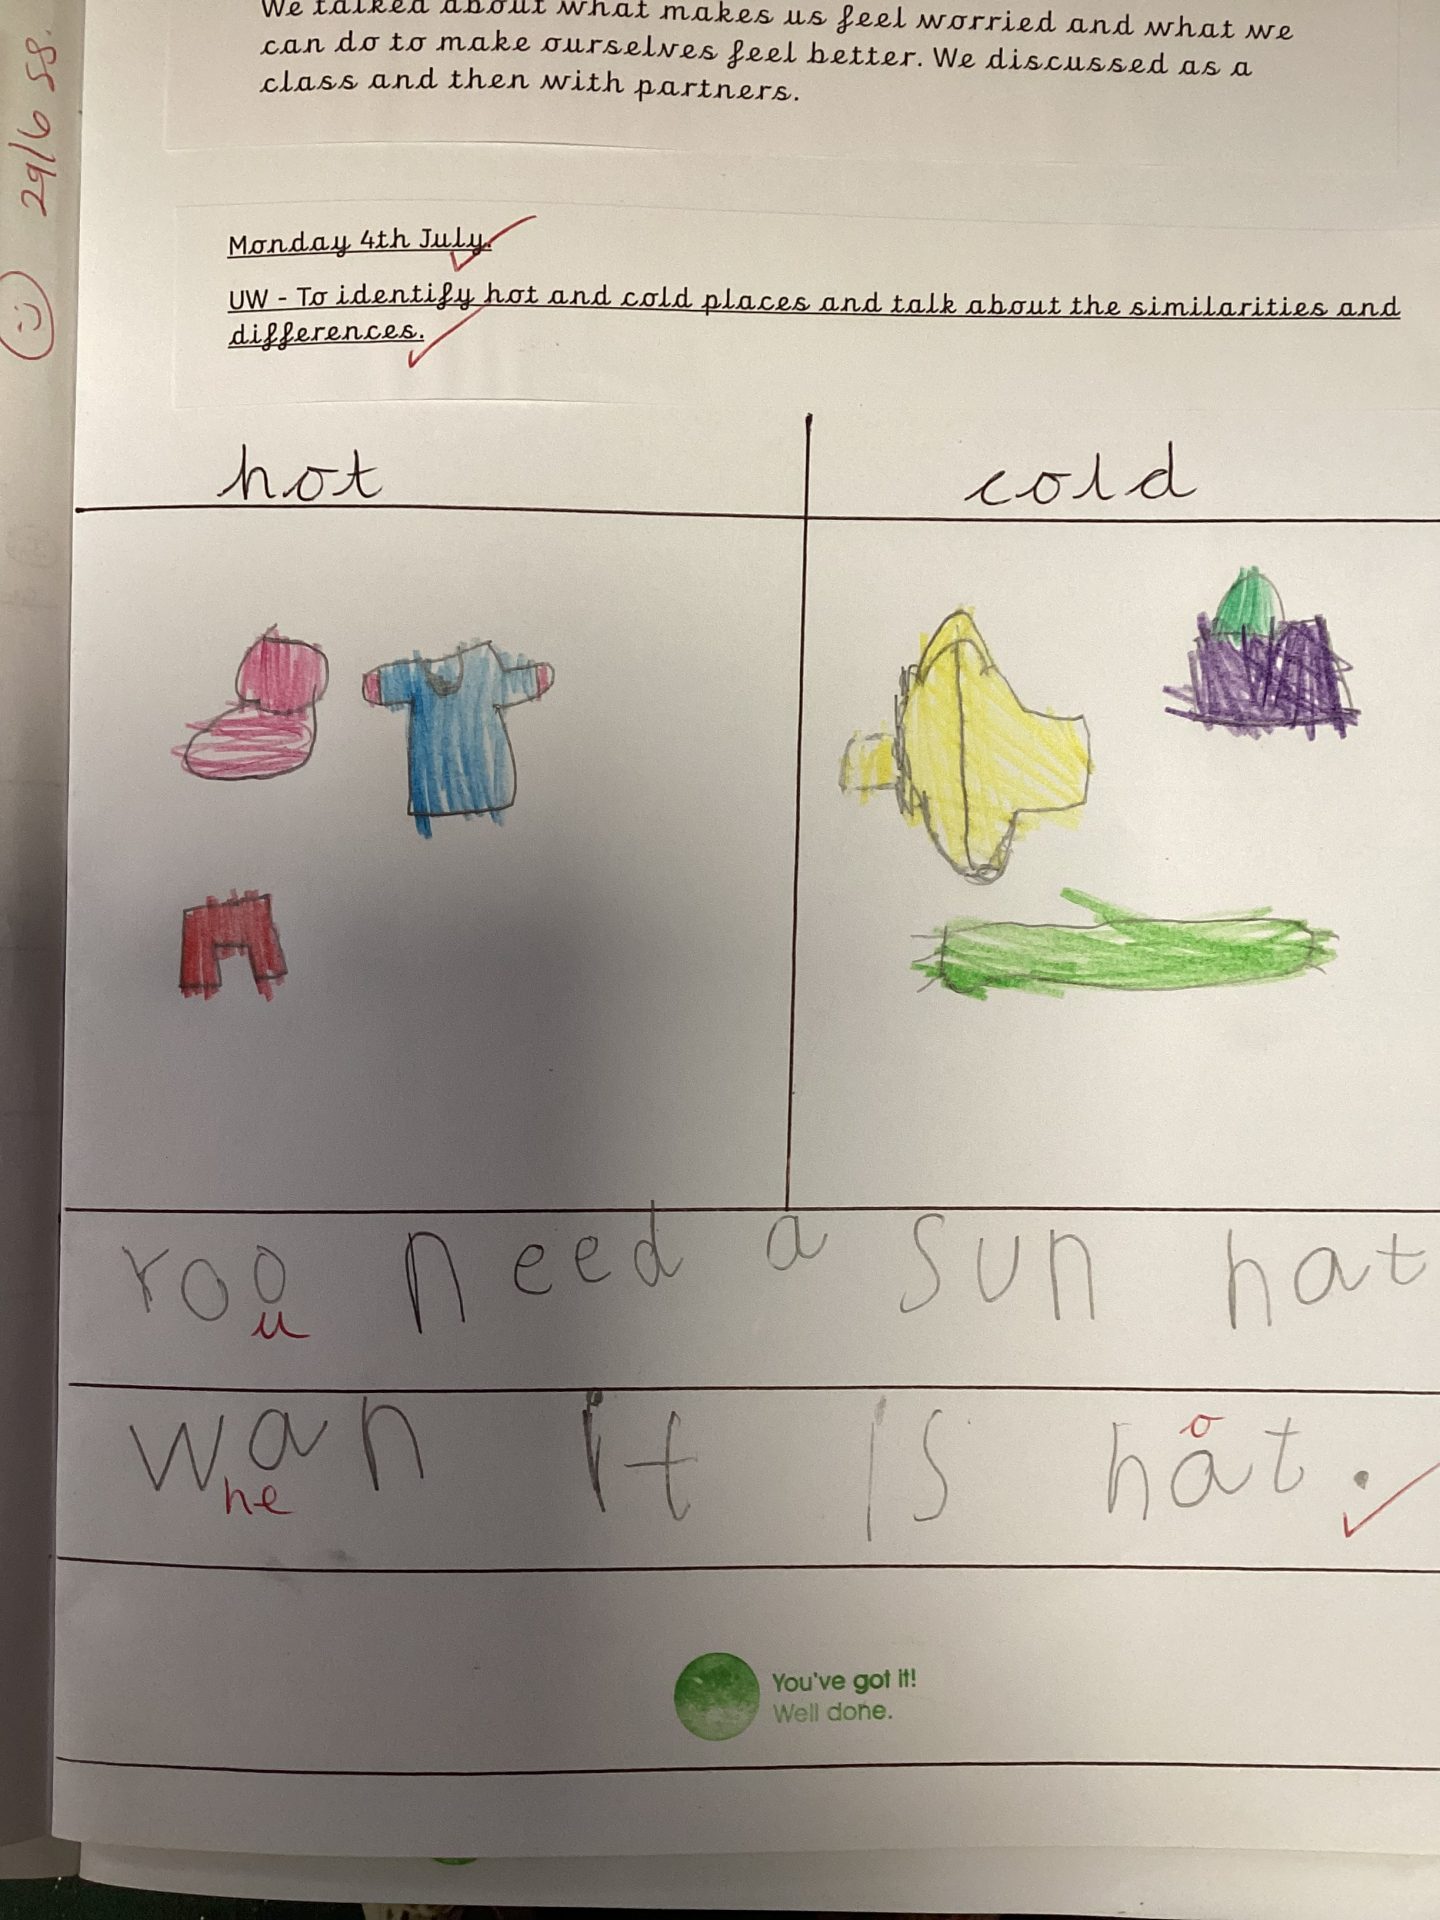 We talked about what makes us feel worried and what we
can do to make ourselves feel better. We discussed as a
class and then with partners.
29/6 SS.
Monday 4th July.
UW - To identify hot and cold places and talk about the similarities and
differences.
hot cold
Yoo need a sun hat
u
wan it is hat.
he o
You've got it!
Well done.